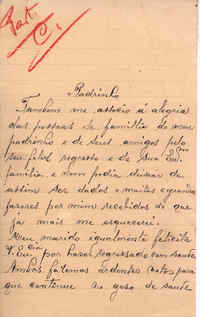 Part.
C.
Padrinho
Tambem me associo á alegria
das pessoas de familia de meu
padrinho e de seus amigos pelo
seu feliz regresso e de sua Exma
familia, e nem podia deixar de
assim ser dados os muitos e grandes
favores por mim recebidos de que
já mais me esquecerei.
Meu marido igualmente felicita
V. Excia por haver regressado com saude
Ambos fazemos ardentes votos para
que continue no goso de saude